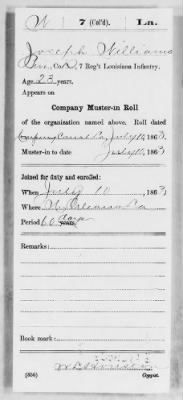 W 7 (Col'd). La.
Joseph Williams
Co. , 7 Reg't Louisiana Infantry.
Age 23 years.
Appears on
Company Muster-in Roll
of the organization named above. Roll dated
July 10, 1863.
Muster-in to date July 10, 1863.
Joined for duty and enrolled:
When July 10, 1863
Where N. Orleans La
Period 60 days years.
Remarks:
Book mark:
(356) Copyist.